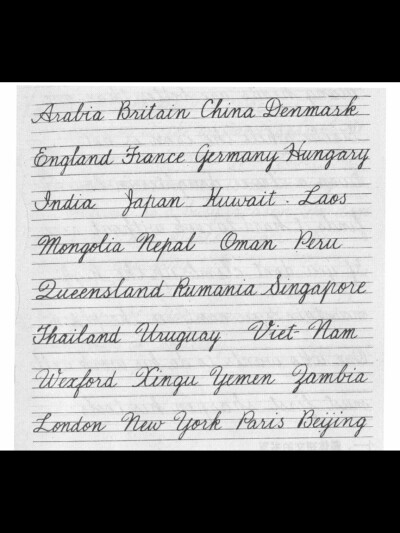 Arabia Britain China Denmark
England France Germany Hungary
India Japan Kuwait. Laos
Mongolia Nepal Oman Peru
Queensland Rumania Singapore
Thailand Uruguay Viet-Nam
Wexford Xingu Yemen Zambia
London New York Paris Beijing